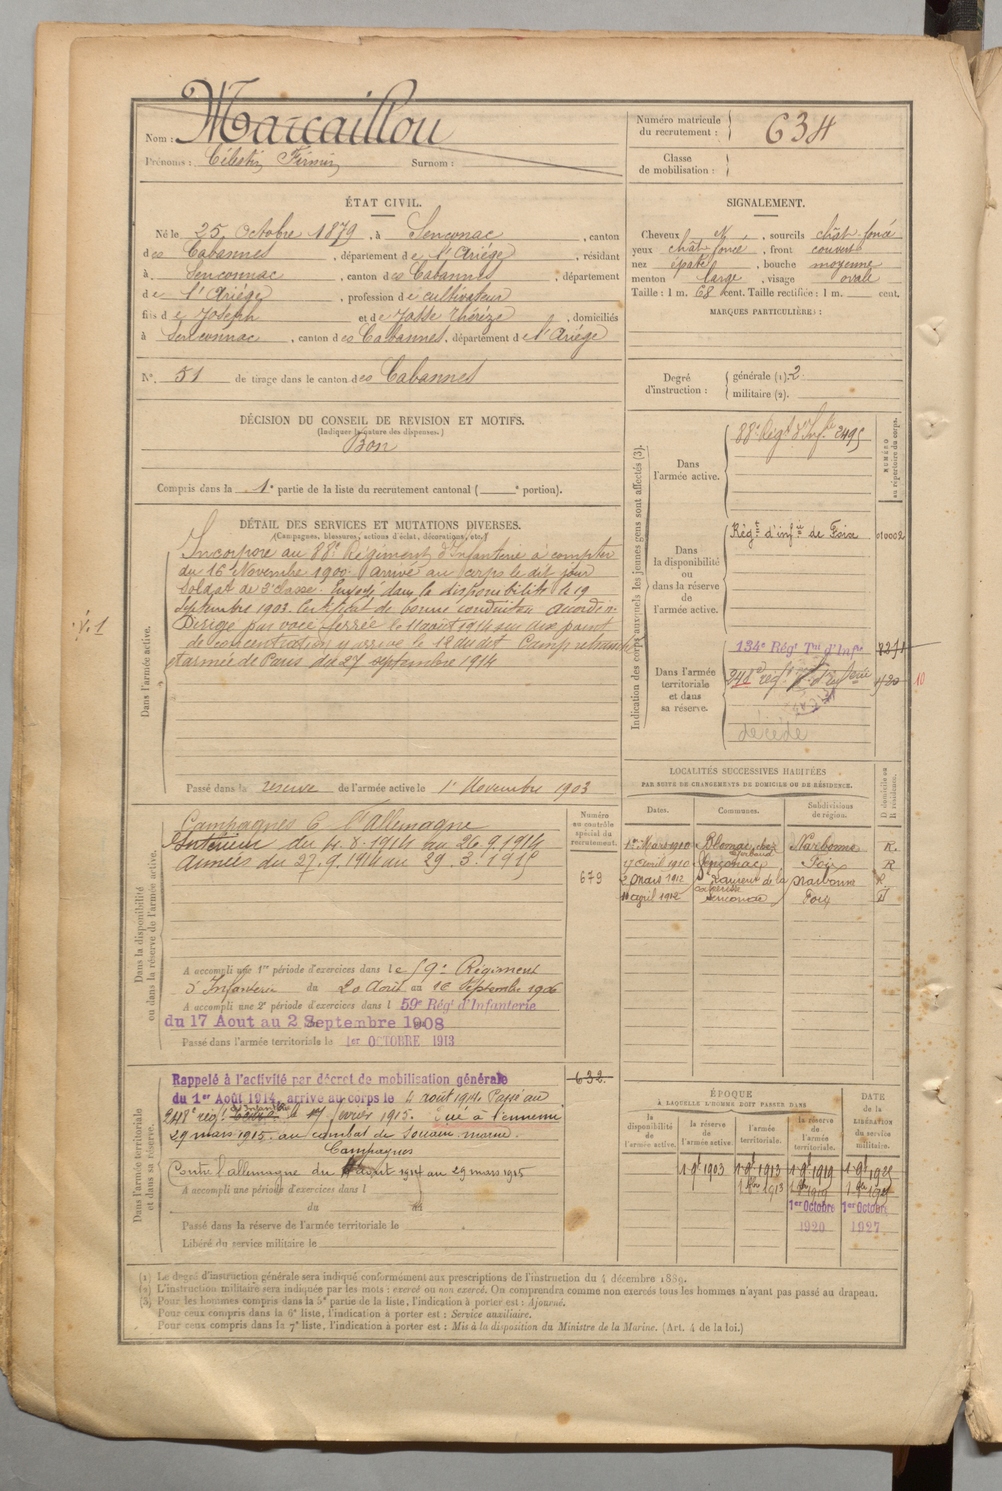 Nom : Marcaillou
Prénoms : Célestin Firmin Surnom :
Numéro matricule du recrutement : 634
Classe de mobilisation :
ÉTAT CIVIL.
Né le 25 Octobre 1879, à Senconac, canton
des Cabannes, département de l'Ariège, résidant
à Senconnac, canton des Cabannes, département
de l'Ariège, profession de cultivateur
fils de Joseph et de Jasse Thérèze, domiciliés
à Senconnac, canton des Cabannes, département de l'Ariège
N° 51 de tirage dans le canton des Cabannes
SIGNALEMENT.
Cheveux N, sourcils chât. foncé
yeux chât. foncé, front couvert
nez épaté, bouche moyenne
menton large, visage ovale
Taille : 1 m. 68 cent. Taille rectifiée : 1 m. cent.
MARQUES PARTICULIÈRES :
Degré d'instruction : générale (1). 2
militaire (2).
DÉCISION DU CONSEIL DE REVISION ET MOTIFS.
(Indiquer la nature des dispenses.)
Bon
Compris dans la 1e partie de la liste du recrutement cantonal ( e portion).
DÉTAIL DES SERVICES ET MUTATIONS DIVERSES.
(Campagnes, blessures, actions d'éclat, décorations, etc.)
Dans l'armée active.
Incorporé au 88e Régiment d'Infanterie à compter
du 16 Novembre 1900. Arrivé au corps le dit jour
Soldat de 2e classe. Envoyé dans la disponibilité le 19
Septembre 1903. Certificat de bonne conduite accordé.
Dirigé par voie ferrée le 11 août 1914 sur un point
de concentration y arrivé le 12 dudit Camp retranché
et armée de Paris du 27 septembre 1914
Passé dans la réserve de l'armée active le 1er Novembre 1903
Indication des corps auxquels les jeunes gens sont affectés (3).
NUMÉRO au répertoire du corps.
Dans l'armée active.
88e Régt d'Inf.ie 2495
Dans la disponibilité ou dans la réserve de l'armée active.
Régt d'inf.ie de Foix 010002
Dans l'armée territoriale et dans sa réserve.
134e Régt Tal d'Infie
décédé
10
Dans la disponibilité ou dans la réserve de l'armée active.
Campagnes C. l'allemagne
Intérieur du 4.8.1914 au 26.9.1914
Armées du 27.9.1914 au 29.3.1915
Numéro au contrôle spécial du recrutement.
679
A accompli une 1re période d'exercices dans le 59e Régiment
d'Infanterie du 20 Août au 16 Septembre 1906
A accompli une 2e période d'exercices dans l 59e Régt d'Infanterie
du 17 Aout au 2 Septembre 1908
Passé dans l'armée territoriale le 1er OCTOBRE 1913
LOCALITÉS SUCCESSIVES HABITÉES
PAR SUITE DE CHANGEMENTS DE DOMICILE OU DE RÉSIDENCE.
Dates. Communes. Subdivisions de région. D domicile ou R résidence.
1er Mars 1910 Narbonne R.
17 avril 1910 Senconac Foix R
2 mars 1912 St Laurent de la Cabrerisse Narbonne R
11 avril 1912 Senconac Foix D
Dans l'armée territoriale et dans sa réserve.
632
Rappelé à l'activité par décret de mobilisation générale
du 1er Août 1914, arrivé au corps le 4 août 1914. Passé au
248e rég. d'infanterie le 17 février 1915. Tué à l'ennemi
29 mars 1915. au combat de Souain marne.
Campagnes
Contre l'allemagne du 4 août 1914 au 29 mars 1915
A accompli une période d'exercices dans l
du au
Passé dans la réserve de l'armée territoriale le
Libéré du service militaire le
ÉPOQUE À LAQUELLE L'HOMME DOIT PASSER DANS
la disponibilité de l'armée active. la réserve de l'armée active. l'armée territoriale. la réserve de l'armée territoriale. DATE de la LIBÉRATION du service militaire.
1er Octobre 1920 1er Octobre 1927
(1) Le degré d'instruction générale sera indiqué conformément aux prescriptions de l'instruction du 4 décembre 1889.
(2) L'instruction militaire sera indiquée par les mots : exercé ou non exercé. On comprendra comme non exercés tous les hommes n'ayant pas passé au drapeau.
(3) Pour les hommes compris dans la 5e partie de la liste, l'indication à porter est : Ajourné.
Pour ceux compris dans la 6e liste, l'indication à porter est : Service auxiliaire.
Pour ceux compris dans la 7e liste, l'indication à porter est : Mis à la disposition du Ministre de la Marine. (Art. 4 de la loi.)